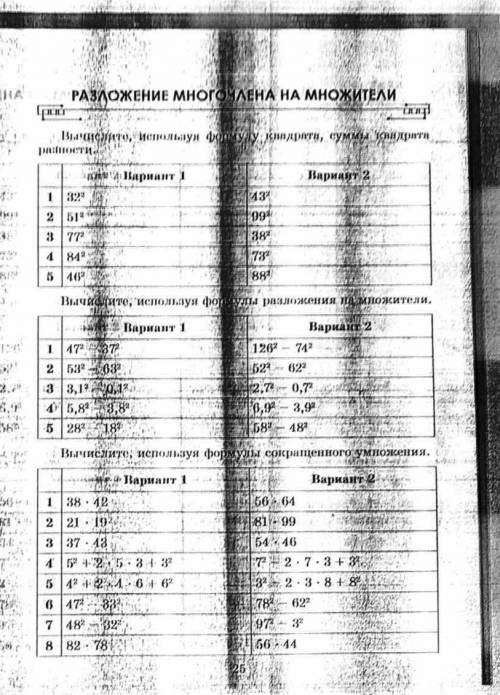 РАЗЛОЖЕНИЕ МНОГОЧЛЕНА НА МНОЖИТЕЛИ
Вычислите, используя формулу квадрата, суммы квадрата
разности.
Вариант 1 Вариант 2
1 32² 43²
2 51² 99²
3 77² 38²
4 84² 73²
5 46² 88²
Вычислите, используя формулы разложения на множители.
Вариант 1 Вариант 2
1 47² – 37² 126² – 74²
2 53² – 63² 52² – 62²
3 3,1² – 0,1² 2,7² – 0,7²
4 5,8² – 3,8² 6,9² – 3,9²
5 28² – 18² 58² – 48²
Вычислите, используя формулы сокращенного умножения.
Вариант 1 Вариант 2
1 38 · 42 56 · 64
2 21 · 19 81 · 99
3 37 · 43 54 · 46
4 5² + 2 · 5 · 3 + 3² 7² – 2 · 7 · 3 + 3²
5 4² + 2 · 4 · 6 + 6² 3² – 2 · 3 · 8 + 8²
6 47² – 33² 78² – 62²
7 48² – 32² 97² – 3²
8 82 · 78 56 · 44
25